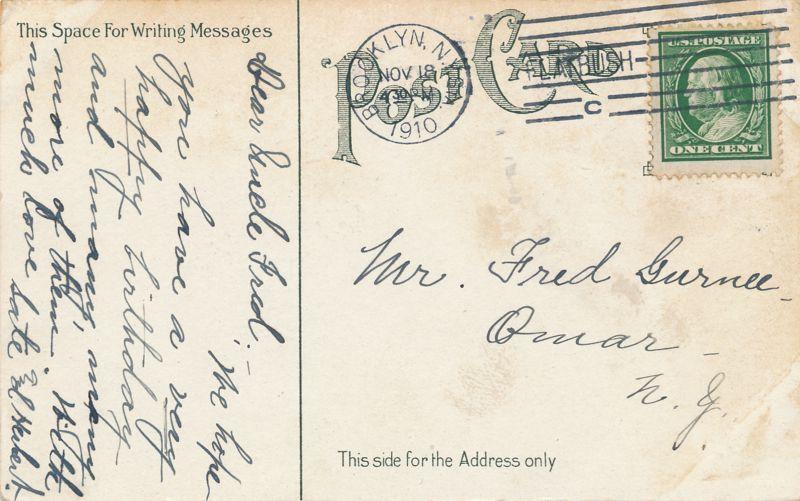 This Space For Writing Messages
Dear Uncle Fred:—
We hope
you have a very
happy birthday
and many, many
more of them. With
much love
POST CARD
BROOKLYN, N.Y.
NOV 18
4:30 PM
1910
FLATBUSH
C
U.S. POSTAGE
ONE CENT
Mr. Fred Gurnee
Omar
N. Y.
This side for the Address only